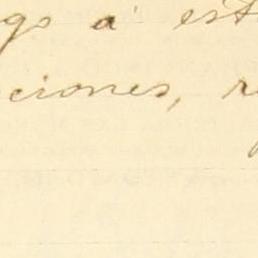 go á est
ciones, r